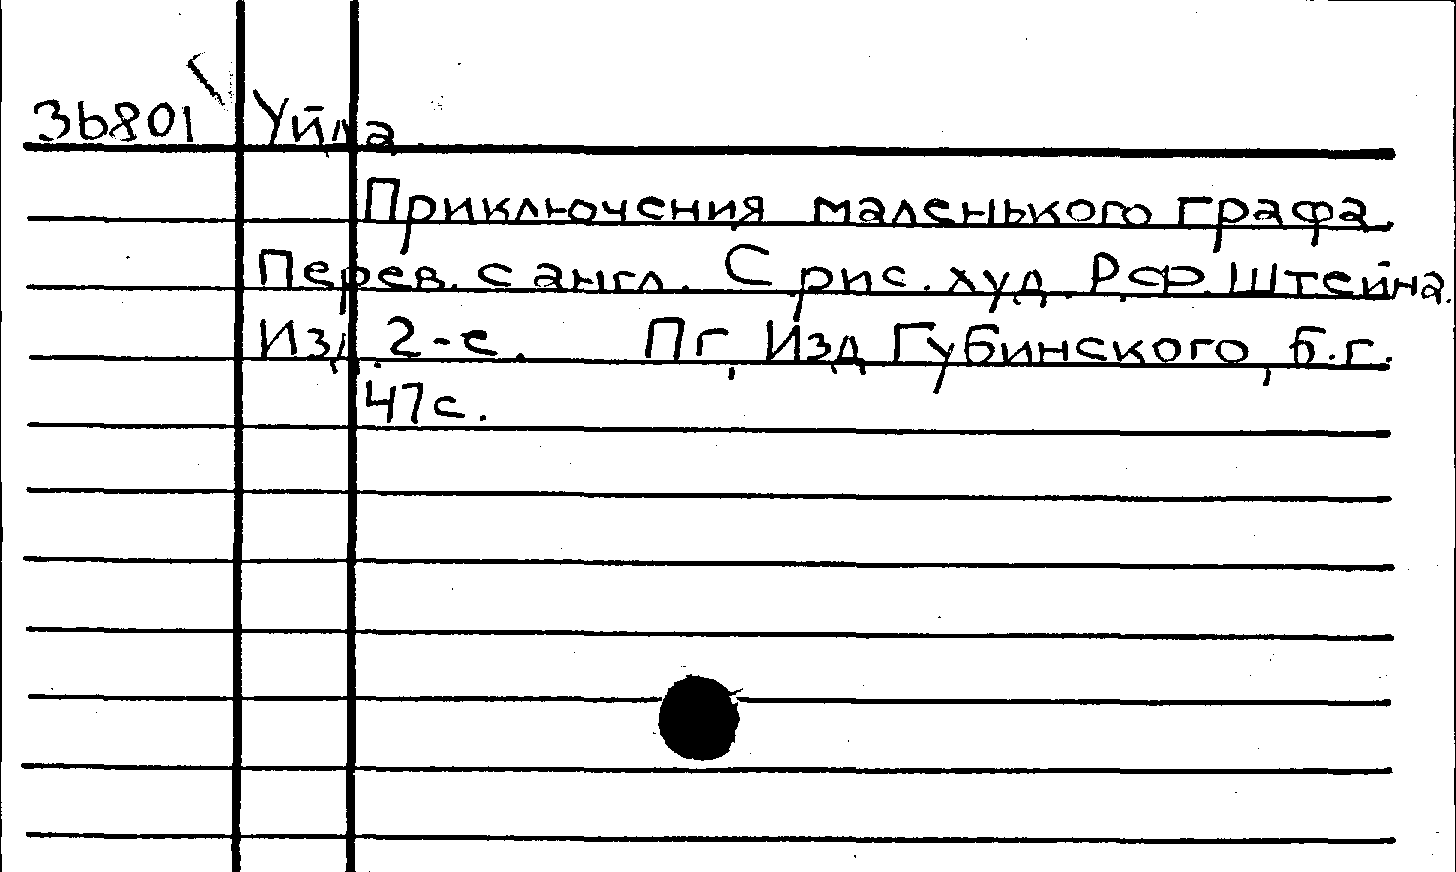 36801 Уйда
Приключения маленького графа.
Перев. с англ. С рис. худ. Р.Ф. Штейна.
Изд. 2-е. Пг, Изд Губинского, б.г.
47с.